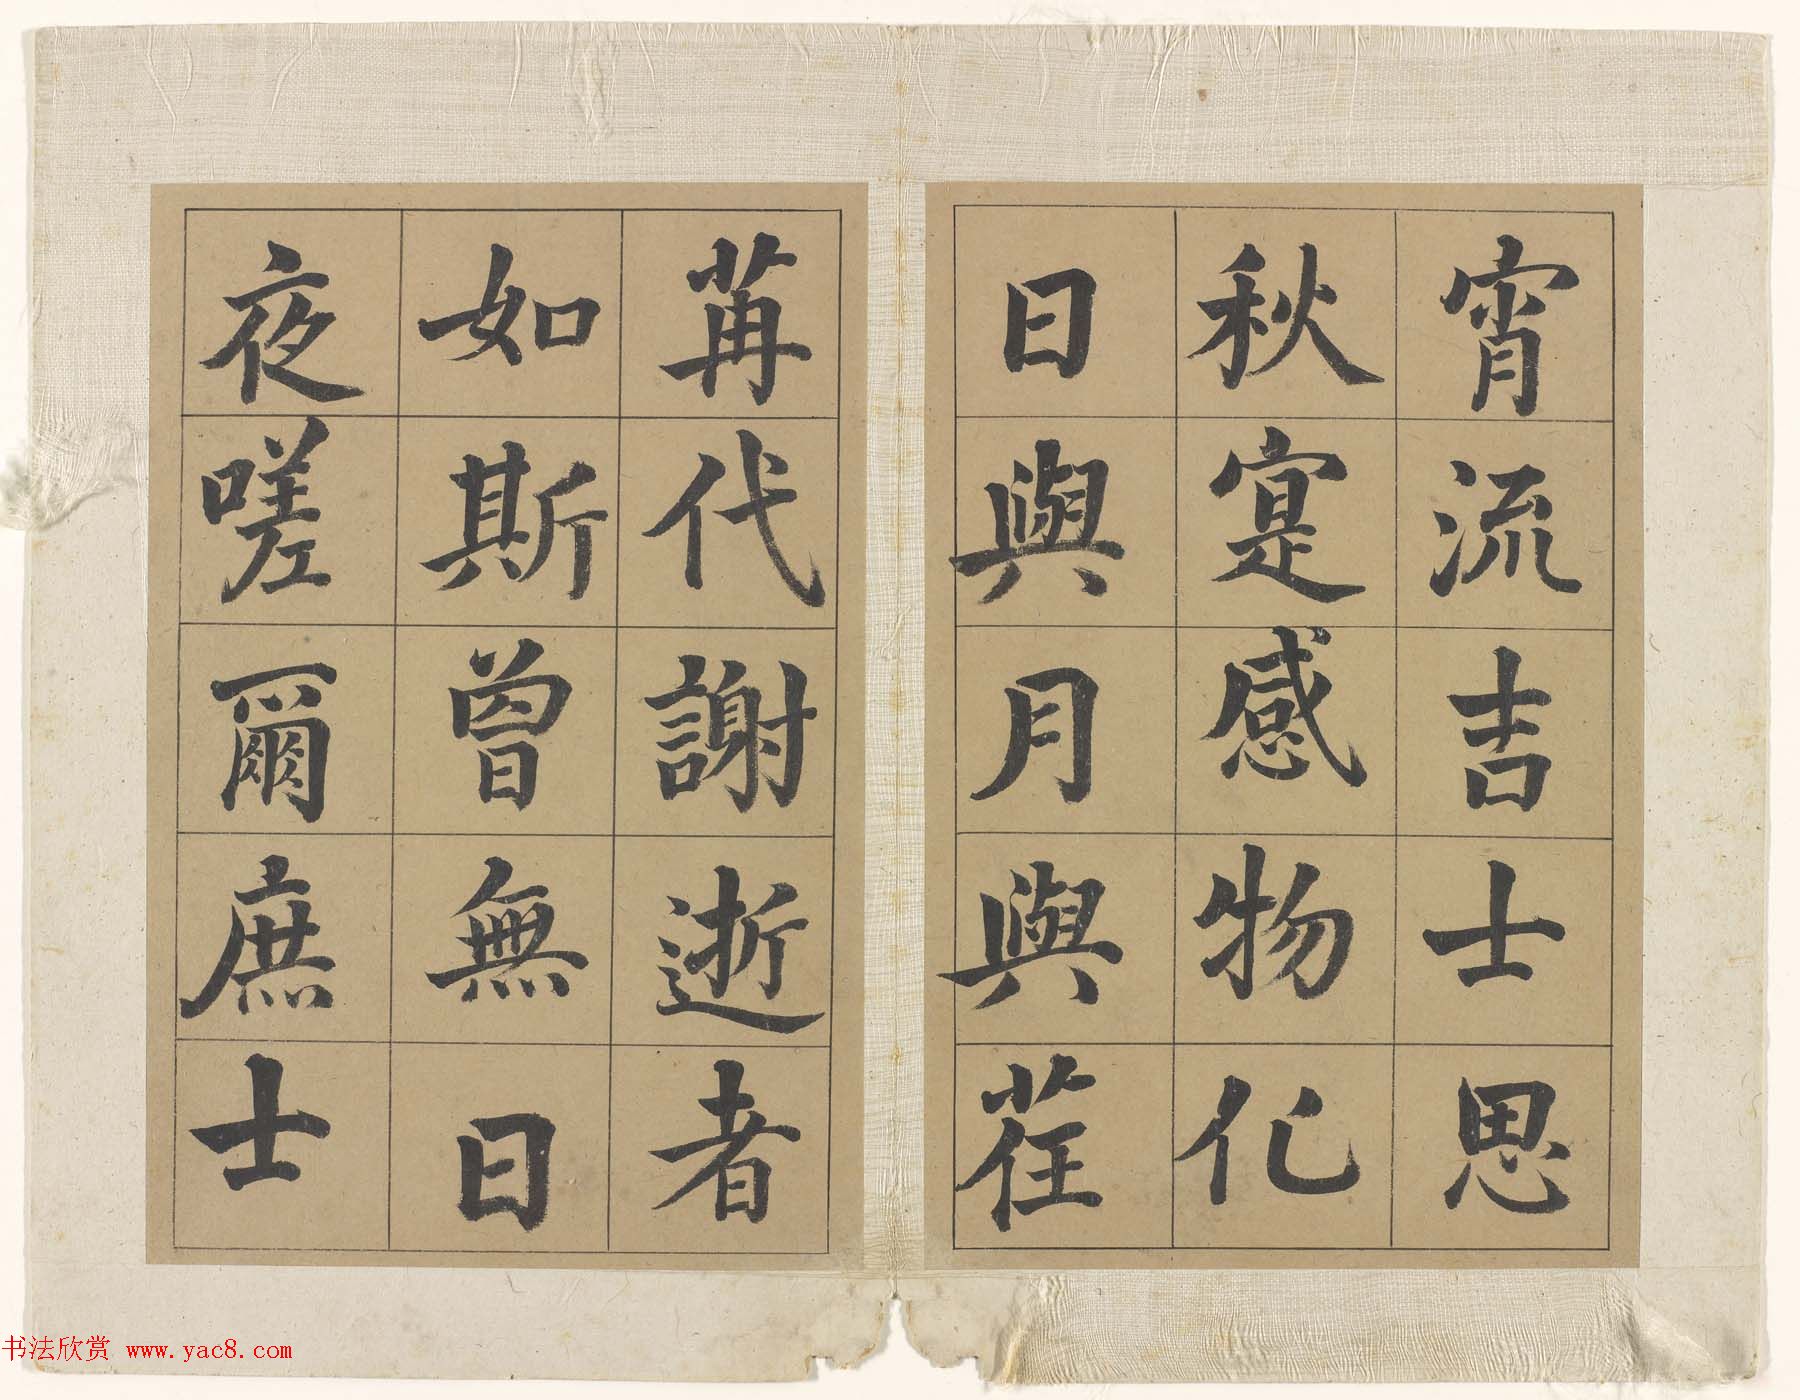 宵流吉士思
秋寔感物化
日與月與荏
苒代謝逝者
如斯曾無日
夜嗟爾庶士
书法欣赏 www.yac8.com